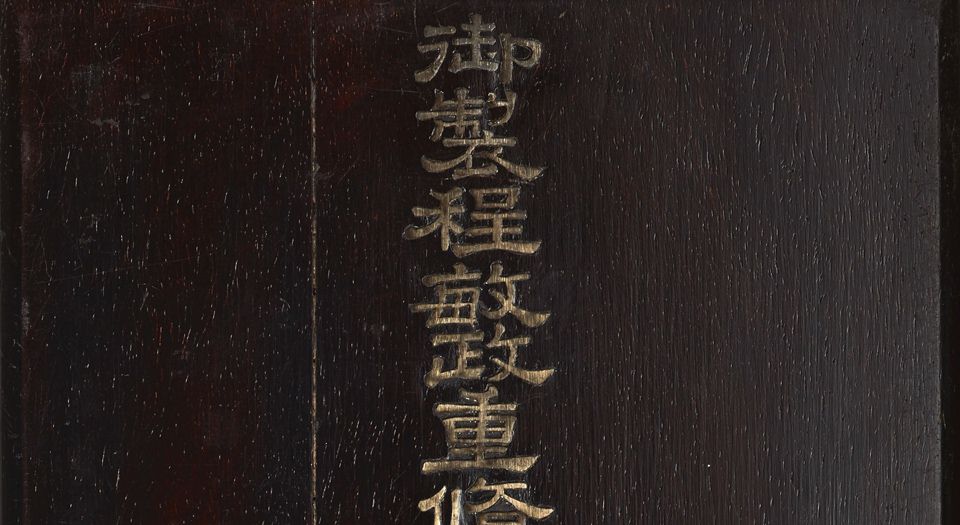 御製程敏政重